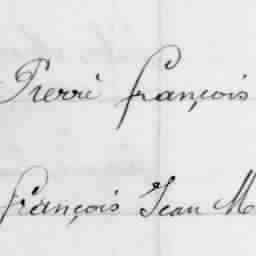 Pierre françois
françois Jean M